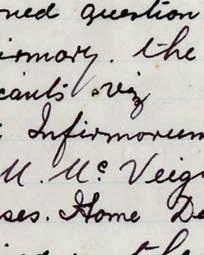 ned question
irmary. the
cants viz
Infirmorum
M. Mc Veig
ses. Home De
the